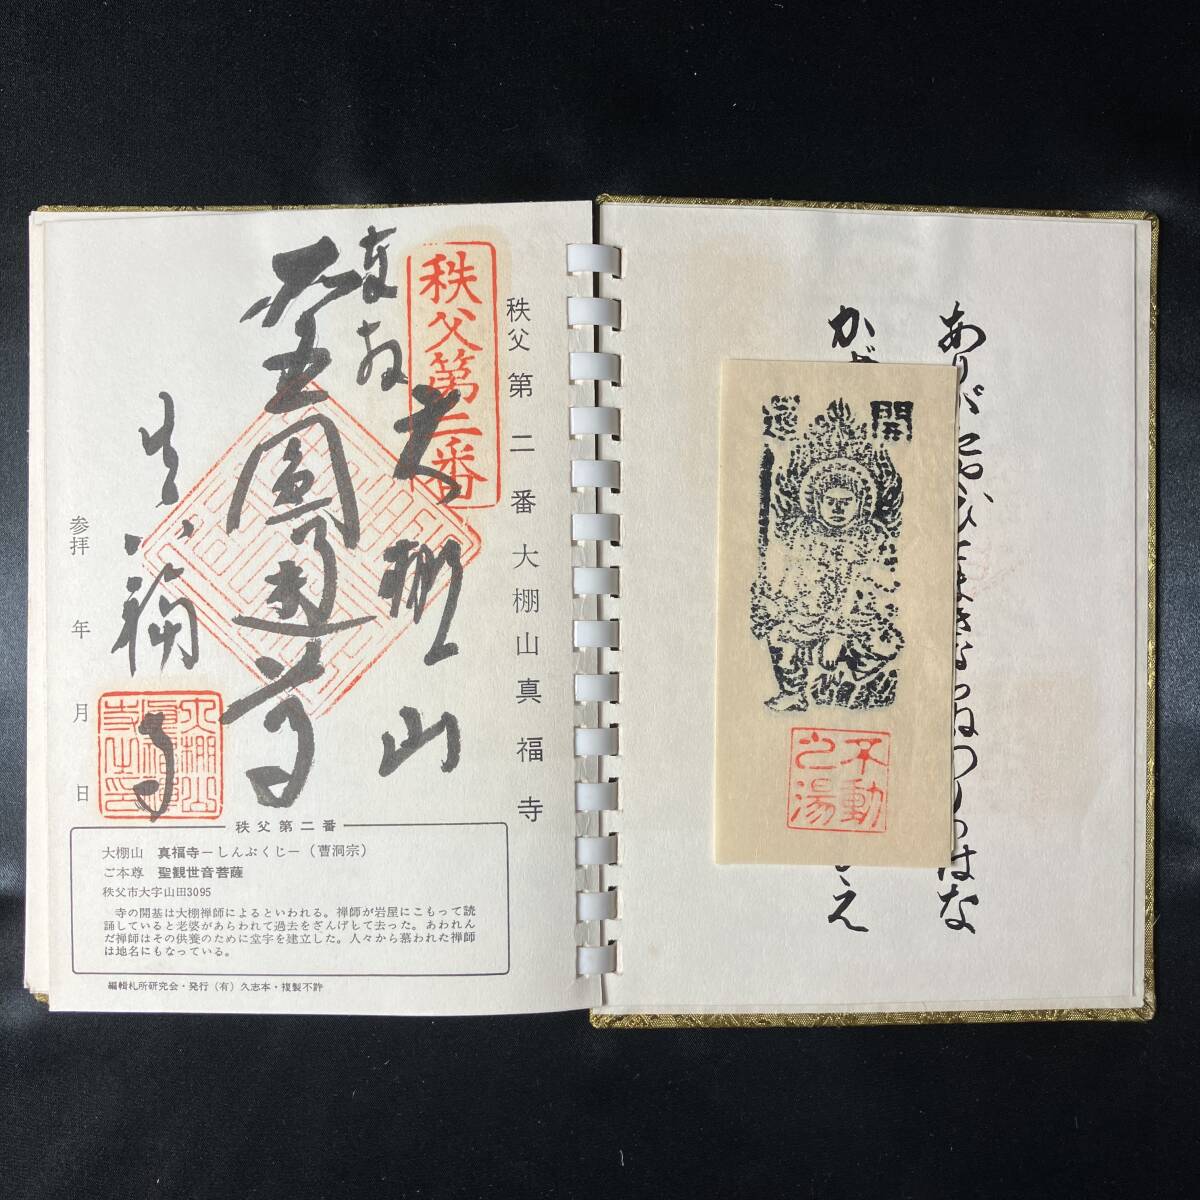 ありがたや
つの
はな
かざ
え
開
運
不動
之湯
秩父第二番 大棚山真福寺
秩父第二番
奉拝
大棚山
聖圓通尊
真福寺
大棚山
参拝 年 月 日
秩父第二番
大棚山 真福寺ーしんぷくじー(曹洞宗)
ご本尊 聖観世音菩薩
秩父市大字山田3095
寺の開基は大棚禅師によるといわれる。禅師が岩屋にこもって読
誦していると老婆があらわれて過去をざんげして去った。あわれん
だ禅師はその供養のために堂宇を建立した。人々から慕われた禅師
は地名にもなっている。
編輯札所研究会・発行(有)久志本・複製不許